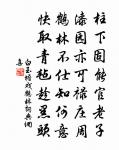 柱下固能官老子
漆園亦可祿莊周
鶴林不仕知何意
快取青氈趁黑頭
白玉蟾戲鶴林